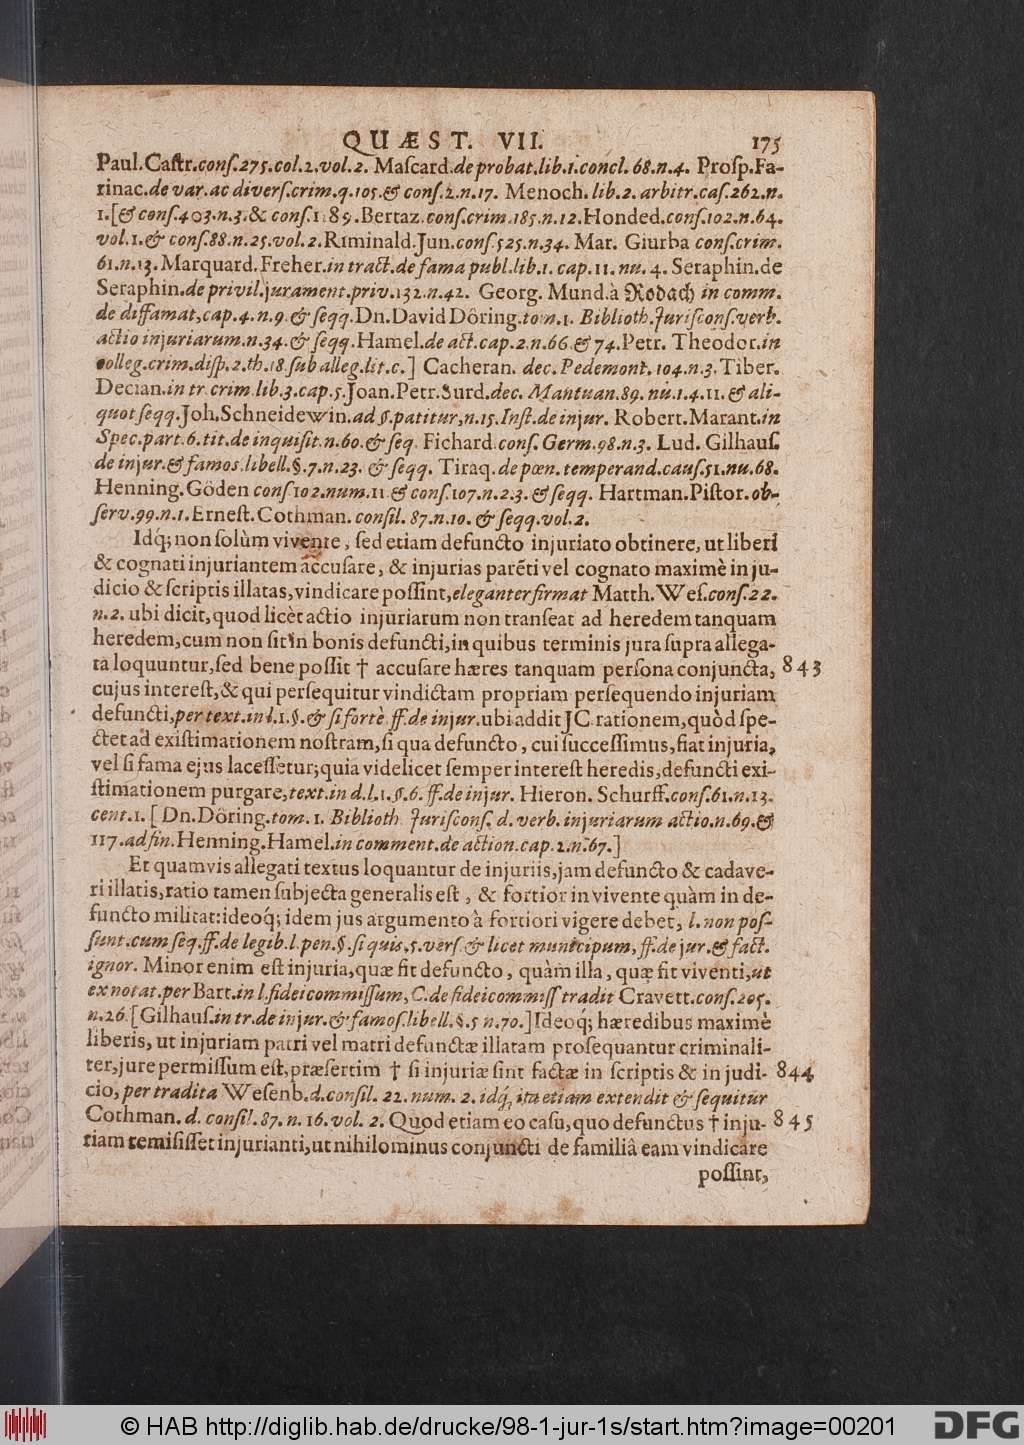 QUÆST. VII. 175
Paul. Caſtr. conſ. 275. col. 2. vol. 2. Maſcard. de probat. lib. 1. concl. 68. n. 4. Proſp. Fa-
rinac. de var. ac diverſ. crim. q. 105. & conſ. 2. n. 17. Menoch. lib. 2. arbitr. caſ. 262. n.
1. [& conſ. 403. n. 3. & conſ. 189. Bertaz. conſ. crim. 185. n. 12. Honded. conſ. 102. n. 64.
vol. 1. & conſ. 88. n. 25. vol. 2. Riminald. Jun. conſ. 525. n. 34. Mar. Giurba conſ. crim.
61. n. 13. Marquard. Freher. in tract. de fama publ. lib. 1. cap. 11. nu. 4. Seraphin. de
Seraphin. de privil. jurament. priv. 132. n. 42. Georg. Mund. à Rodach in comm.
de diffamat, cap. 4. n. 9. & ſeqq. Dn. David Döring. tom. 1. Biblioth. Juriſconſ. verb.
actio injuriarum. n. 34. & ſeqq. Hamel. de act. cap. 2. n. 66. & 74. Petr. Theodor. in
colleg. crim. diſp. 2. th. 18. ſub alleg. lit. c.] Cacheran. dec. Pedemont. 104. n. 3. Tiber.
Decian. in tr. crim. lib. 3. cap. 5. Joan. Petr. Surd. dec. Mantuan. 89. nu. 1. 4. 11. & ali-
quot ſeqq. Joh. Schneidewin. ad §. patitur, n. 15. Inſt. de injur. Robert. Marant. in
Spec. part. 6. tit. de inquiſit. n. 60. & ſeq. Fichard. conſ. Germ. 98. n. 3. Lud. Gilhauſ.
de injur. & famos. libell. §. 7. n. 23. & ſeqq. Tiraq. de pœn. temperand. cauſ. 51. nu. 68.
Henning. Göden conſ. 102. num. 11. & conſ. 107. n. 2. 3. & ſeqq. Hartman. Piſtor. ob-
ſerv. 99. n. 1. Erneſt. Cothman. conſil. 87. n. 10. & ſeqq. vol. 2.
Idq́; non ſolùm vivente, ſed etiam defuncto injuriato obtinere, ut liberi
& cognati injuriantem accuſare, & injurias parēti vel cognato maximè in ju-
dicio & ſcriptis illatas, vindicare poſſint, eleganter firmat Matth. Weſ. conſ. 22.
n. 2. ubi dicit, quod licèt actio injuriarum non tranſeat ad heredem tanquam
heredem, cum non ſit in bonis defuncti, in quibus terminis jura ſupra allega-
ta loquuntur, ſed bene poſſit † accuſare hæres tanquam perſona conjuncta, 843
cujus intereſt, & qui perſequitur vindictam propriam perſequendo injuriam
defuncti, per text. in l. 1. §. & ſi fortè ff. de injur. ubi addit JC. rationem, quòd ſpe-
ctet ad exiſtimationem noſtram, ſi qua defuncto, cui ſucceſſimus, fiat injuria,
vel ſi fama ejus laceſſetur; quia videlicet ſemper intereſt heredis, defuncti exi-
ſtimationem purgare, text. in d. l. 1. §. 6. ff. de injur. Hieron. Schurff. conſ. 61. n. 13.
cent. 1. [Dn. Döring. tom. 1. Biblioth. Juriſconſ. d. verb. injuriarum actio. n. 69. &
117. ad fin. Henning. Hamel. in comment. de action. cap. 2. n. 67.]
Et quamvis allegati textus loquantur de injuriis, jam defuncto & cadave-
ri illatis, ratio tamen ſubjecta generalis eſt, & fortior in vivente quàm in de-
functo militat: ideoq́; idem jus argumento à fortiori vigere debet, l. non poſ-
ſunt. cum ſeq. ff. de legib. l. pen. §. ſi quis. 5. verſ. & licet municipum, ff. de jur. & fact.
ignor. Minor enim eſt injuria, quæ fit defuncto, quàm illa, quæ fit viventi, ut
ex notat. per Bart. in l. fideicommiſſum, C. de fideicommiſſ tradit Cravett. conſ. 205.
n. 26. [Gilhauſ. in tr. de injur. & famoſ. libell. §. 5 n. 70.] Ideoq́; hæredibus maximè
liberis, ut injuriam patri vel matri defunctæ illatam proſequantur criminali-
ter, jure permiſſum eſt, præſertim † ſi injuriæ ſint factæ in ſcriptis & in judi- 844
cio, per tradita Weſenb. d. conſil. 22. num. 2. idq́, ita etiam extendit & ſequitur
Cothman. d. conſil. 87. n. 16. vol. 2. Quod etiam eo caſu, quo defunctus † inju- 845
riam remiſiſſet injurianti, ut nihilominus conjuncti de familiâ eam vindicare
poſſint,
© HAB http://diglib.hab.de/drucke/98-1-jur-1s/start.htm?image=00201
DFG